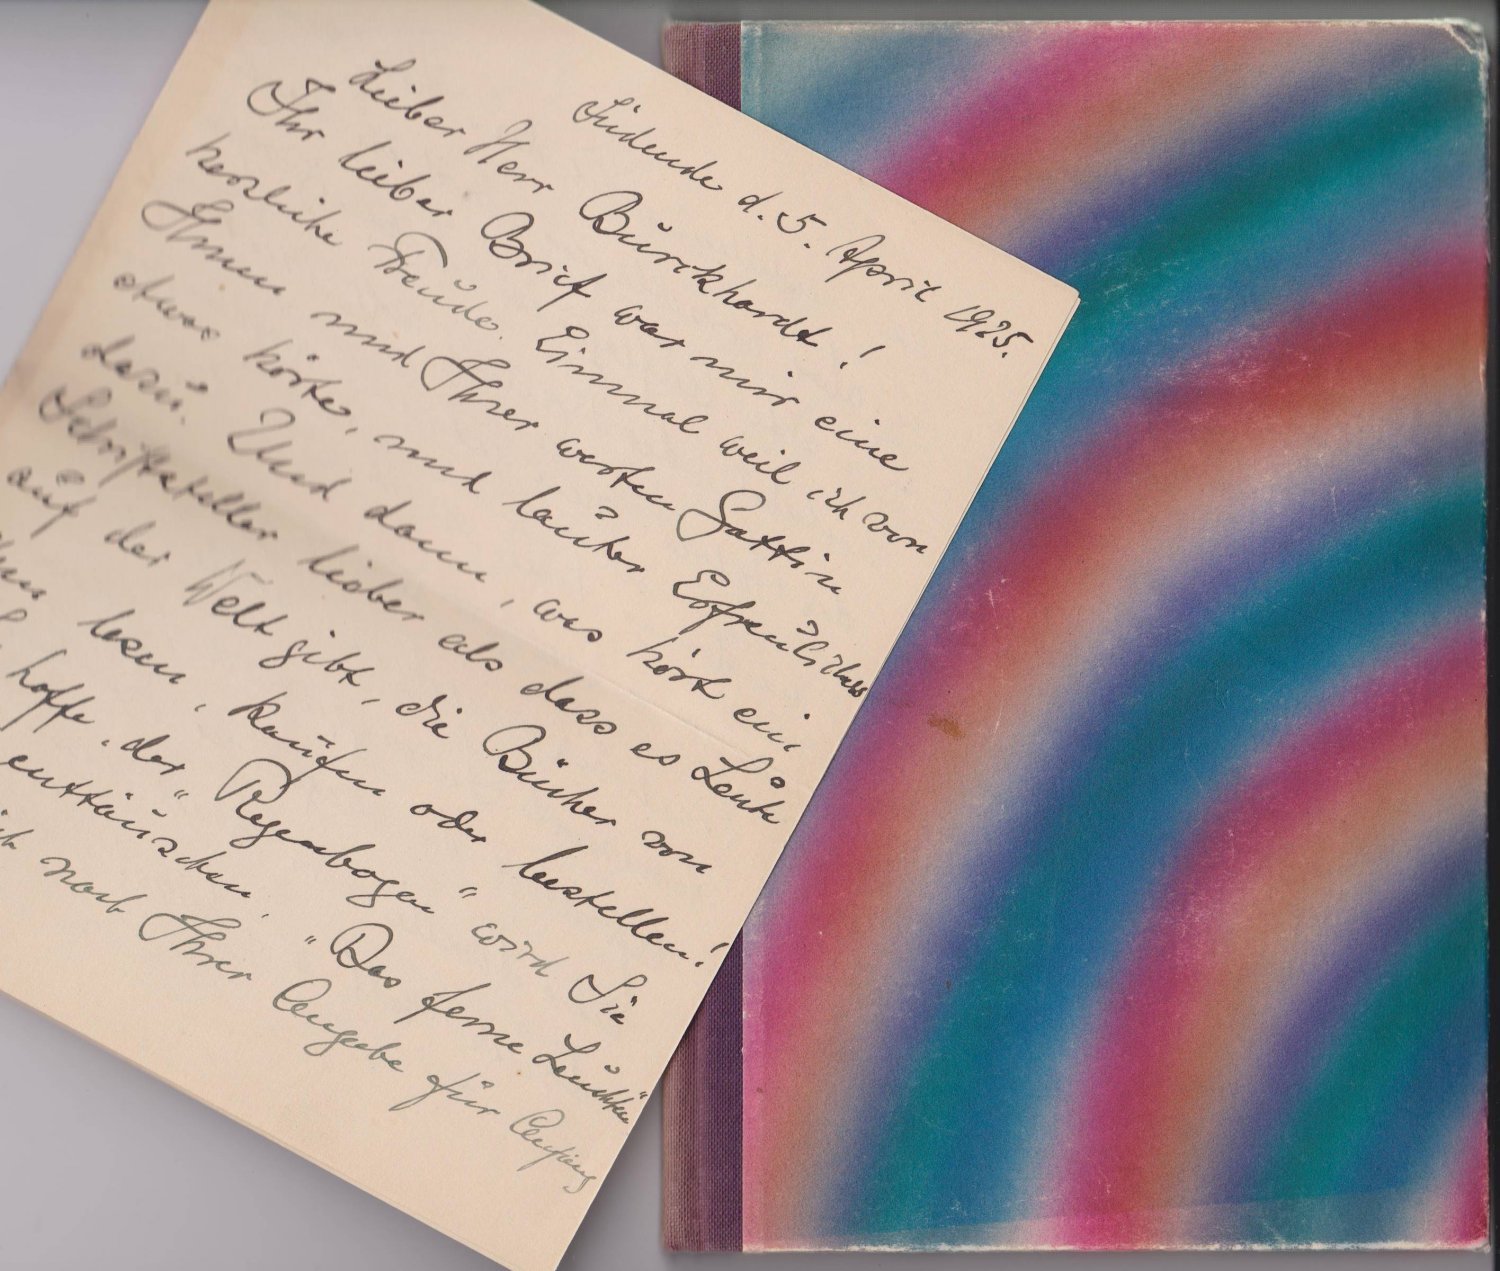 Südende d. 5. April 1925.
Lieber Herr Burckhardt!
Ihr lieber Brief war mir eine
herzliche Freude. Einmal weil ich von
Ihnen und Ihrer werten Gattin
etwas hörte, und lauter Erfreuliches
dazu. Und dann, was hört ein
Schriftsteller lieber als dass es Leute
auf der Welt gibt, die Bücher von
lesen, kaufen oder bestellen!
hoffe, der „Regenbogen“ wird Sie
enttäuschen. „Das ferne Leuchten“
nach Ihrer Angabe für Anfang